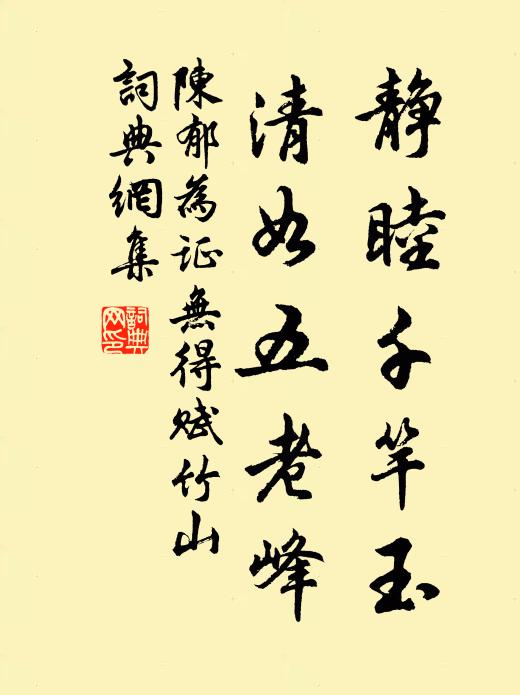 静睦千竿玉
清如五老峰
陳郁為証無得赋竹山
詞典網集
詞典网印